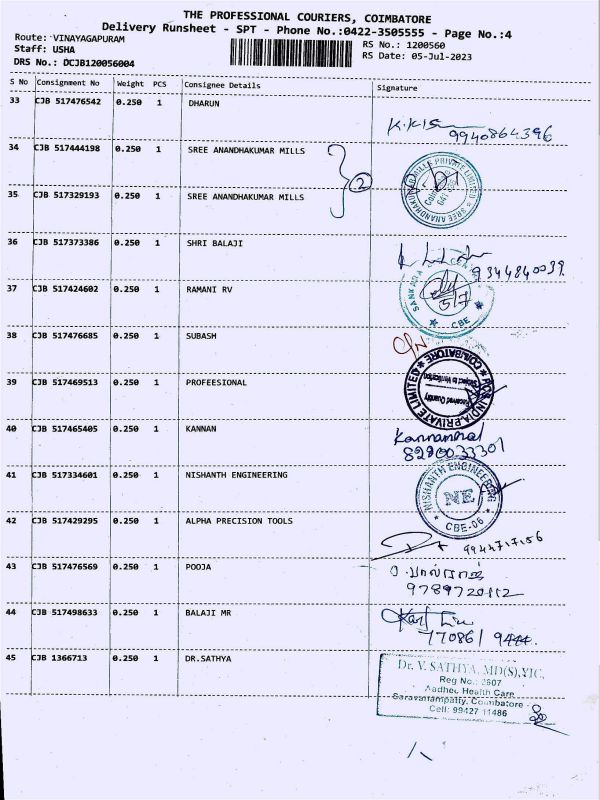 THE PROFESSIONAL COURIERS, COIMBATORE
Delivery Runsheet - SPT - Phone No.:0422-3505555 - Page No.:4
Route: VINAYAGAPURAM
Staff: USHA
DRS No.: DCJB120056004
RS No.: 1200560
RS Date: 05-Jul-2023
S No Consignment No Weight PCS Consignee Details Signature
33 CJB 517476542 0.250 1 DHARUN
9940864396
34 CJB 517444198 0.250 1 SREE ANANDHAKUMAR MILLS
2
SREE ANANDHAKUMAR MILLS PRIVATE LIMITED
35 CJB 517329193 0.250 1 SREE ANANDHAKUMAR MILLS
36 CJB 517373386 0.250 1 SHRI BALAJI
9344840039
37 CJB 517424602 0.250 1 RAMANI RV
5/7
CBE
38 CJB 517476685 0.250 1 SUBASH
39 CJB 517469513 0.250 1 PROFEESIONAL
INDIA PRIVATE LIMITED
COIMBATORE
Received Quantity
Subject to Verification
40 CJB 517465405 0.250 1 KANNAN
41 CJB 517334601 0.250 1 NISHANTH ENGINEERING
NISHANTH ENGINEERING
NE
CBE-06
42 CJB 517429295 0.250 1 ALPHA PRECISION TOOLS
43 CJB 517476569 0.250 1 POOJA
44 CJB 517498633 0.250 1 BALAJI MR
45 CJB 1366713 0.250 1 DR.SATHYA
Dr. V. SATHYA, MD(S),YIC,
Reg No.: 2607
Aadhee Health Care
Saravanampatty, Coimbatore -
Cell: 99427 11486